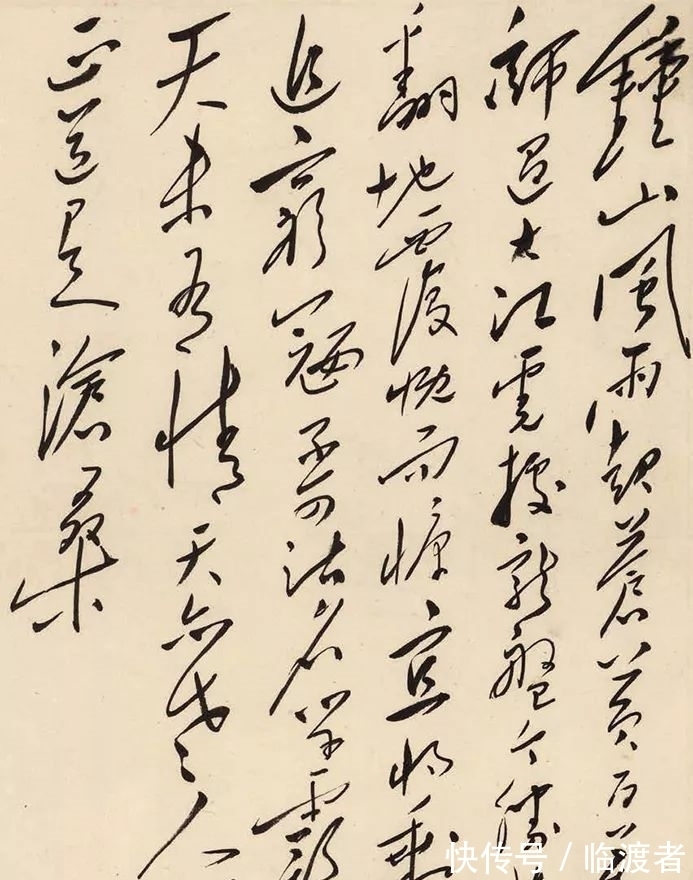 鍾山風雨起蒼黃百萬
師過大江虎據龍盤今勝
翻地覆慨而慷宜將剩
追窮寇不可沽名學霸
天若有情天亦老人
正道是滄桑
快传号 / 临渡者